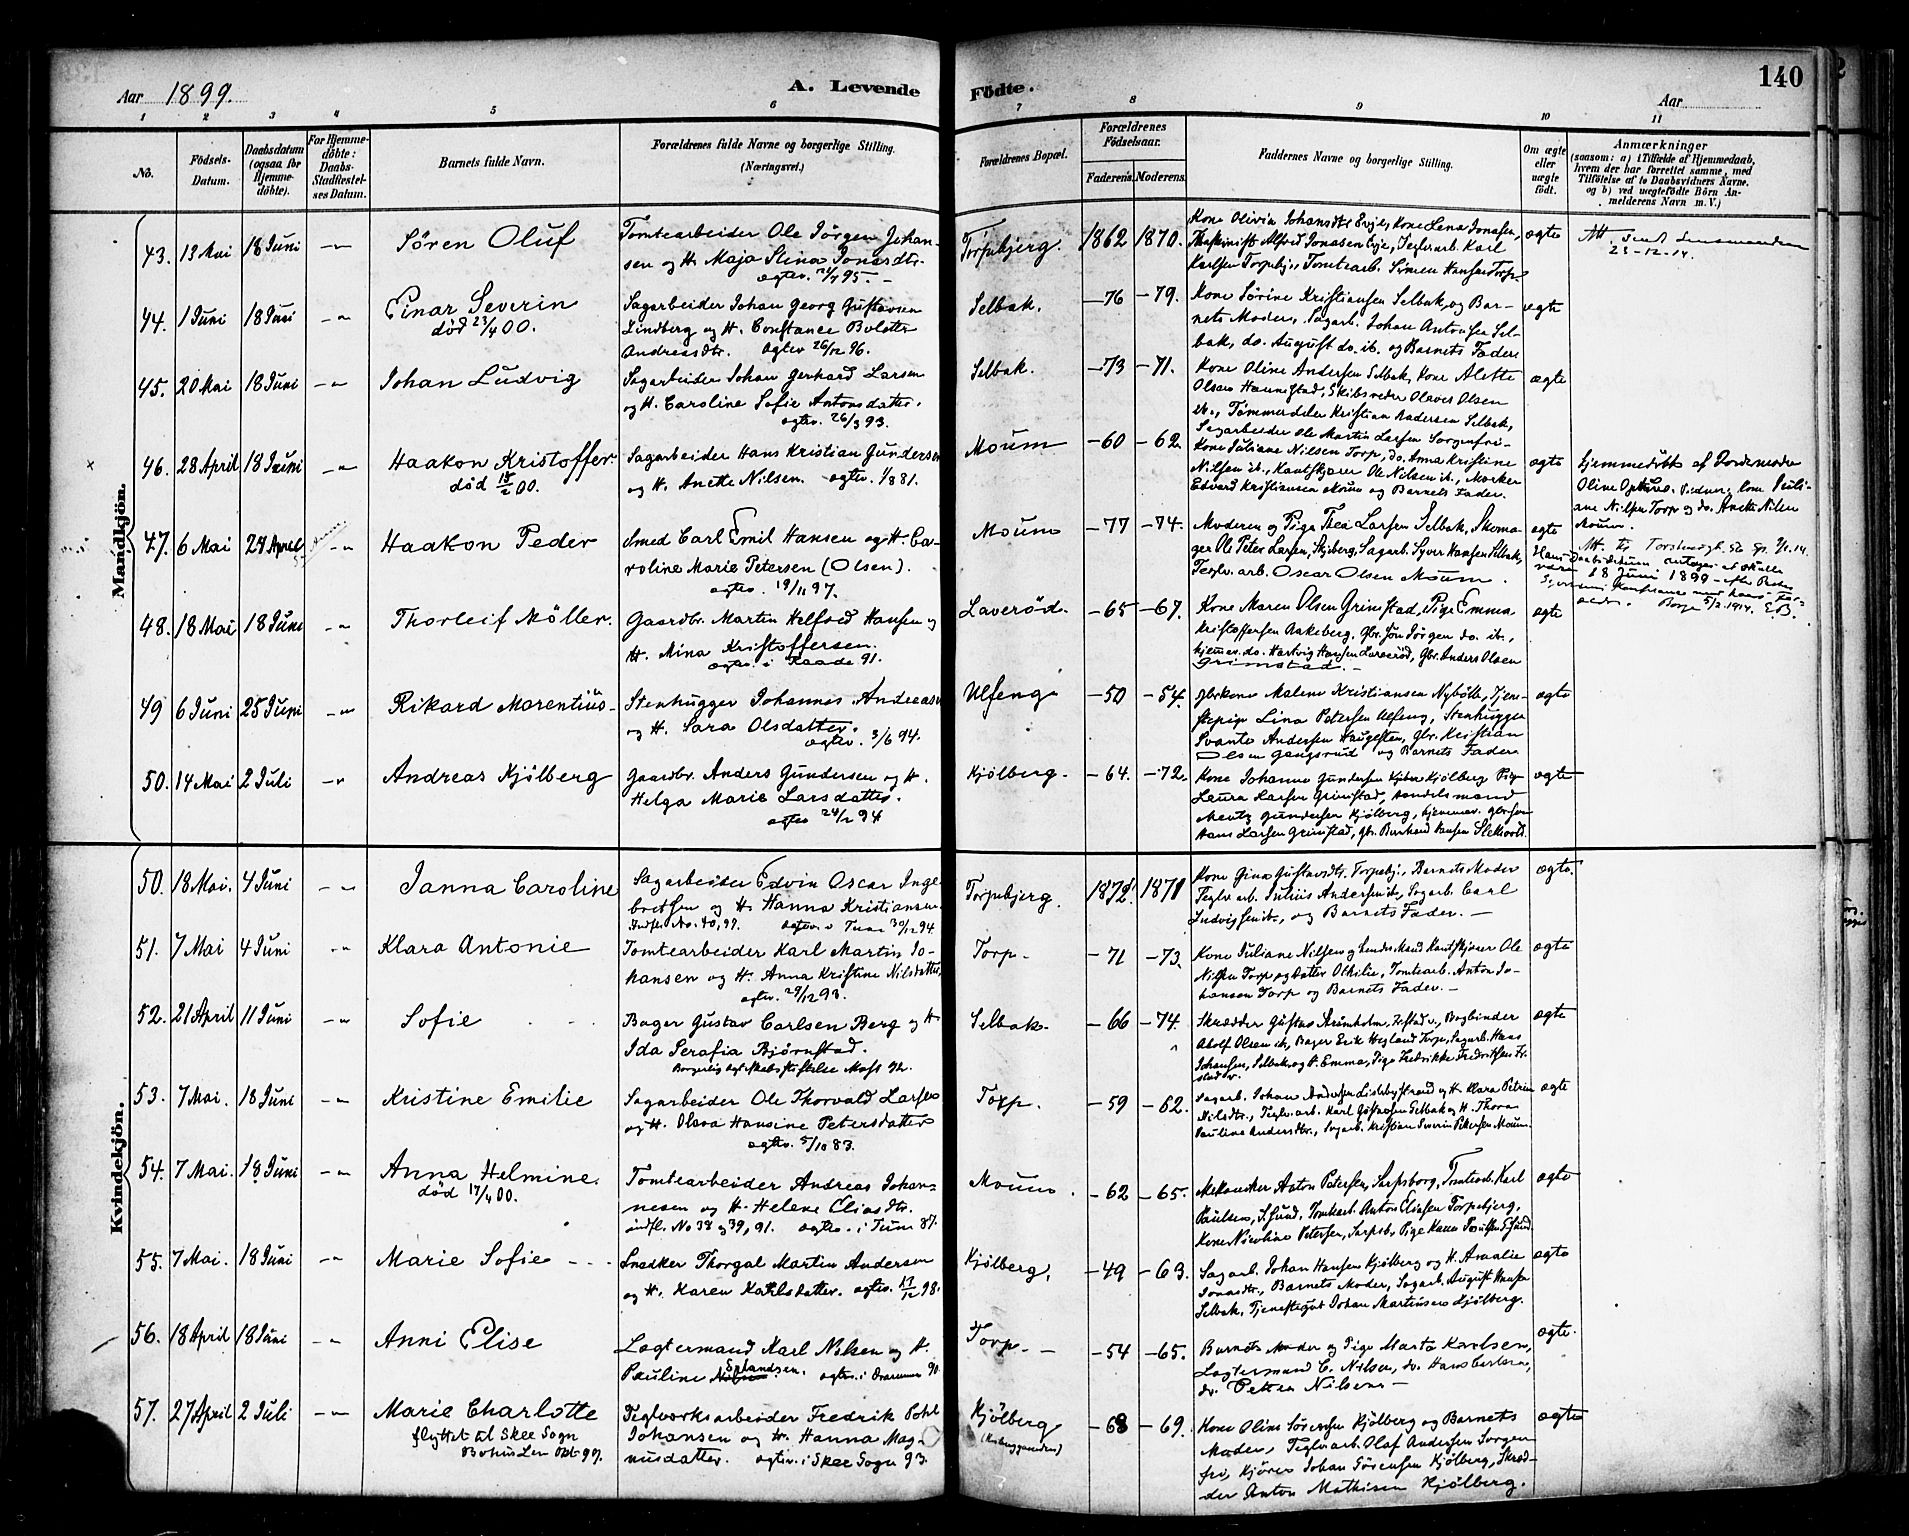 140
Aar 1899.
A. Levende
Födte.
Aar
1 2 3 4 5 6 7 8 9 10 11
No.
Födsels-
Datum.
Daabsdatum
(ogsaa for
Hjemme-
döbte).
For Hjemme-
döbte:
Daabs-
Stadfæstel-
ses Datum.
Barnets fulde Navn.
Forældrenes fulde Navne og borgerlige Stilling.
(Næringsvei.)
Forældrenes Bopæl.
Forældrenes
Födselsaar.
Faderens. Moderens.
Faddernes Navne og borgerlige Stilling.
Om ægte
eller
uægte
födt.
Anmærkninger
(saasom: a) i Tilfælde af Hjemmedaab,
hvem der har forrettet samme, med
Tilföielse af to Daabsvidners Navne.
og b) ved uægtefödte Börn An-
melderens Navn m. V.)
Mandkjön.
43. 13 Mai 18 Juni Søren Oluf
Tomtearbeider Ole Jörgen Johan-
sen og H. Maja Stina Jonasdtr.
Torpebjerg. 1862 1870.
Kone Olivia Johansdtr Evje, Kone Lena Jonasen,
Maskinist Alfred Jonasen Evje, Teglv.arb. Karl
Karlsen Torpebj., Tomtearb. Simen Hansen Torp
ægte
23-12-14.
44. 1 Juni 18 Juni Einar Severin
død 23/4 00.
Sagarbeider Johan Georg Gustavsen
Lindberg og H. Constance Bolette
Andreasdtr. ægtev 26/12 96.
Selbak. -76 -79.
Kone Sörine Kristiansen Selbak, og Bar-
nets Moder, Sagarb. Johan Antonsen Sel-
bak, do. August do. ib. og Barnets Fader
ægte
45. 20 Mai 18 Juni Johan Ludvig
Sagarbeider Johan Gerhard Larsen
og H. Caroline Sofie Antonsdatter.
ægtev. 26/3 93.
Selbak. -73 -71.
Kone Oline Andersen Selbak, Kone Alette
Olsen Hannestad, Skibsreder Oluves Olsen
ib., Tømmerdeler Kristian Andersen Selbak,
Sagarbeider Ole Martin Larsen Sorgenfri-
ægte
46. 28 April 18 Juni Haakon Kristoffer.
død 15/2 00.
Sagarbeider Hans Kristian Gundersen
og H. Anette Nilsen. ægtev. 1/8 81.
Moum -60 -62.
Kone Juliane Nilsen Torp, do. Anna Kristine
Nilsen ib., Kantskjører Ole Nilsen ib., Murker
Edvard Kristiansen Moum og Barnets Fader.
ægte
Hjemmedöbt af Jordemoder
ane Nilsen Torp og do. Anette Nilsen
Moum.
47. 6 Mai 24 April Haakon Peder
Smed Carl Emil Hansen og H. Ca-
roline Marie Petersen (Olsen).
ægtev. 19/11 97.
Moum -77 -74.
Moderen og Pige Thea Larsen Selbak, Skoma-
ger Ole Peter Larsen, Skjeberg, Sagarb. Syver Hansen Selbak,
Teglv. arb. Oscar Olsen Moum.
ægte
være 18 Juni 1899 - efter Peder
Borge 5/2 1914. E.B.
48. 18 Mai 18 Juni Thorleif Möller.
Gaardbr. Martin Helfred Hansen og
H. Mina Kristoffersen.
ægtev. i Raade 91.
Laveröd. -65 -67.
Kone Maren Olsen Grimstad, Pige Emma
Kristoffersen Rakeberg, Gbr. Jon Jörgen do. ib.,
hjemmev. do. Hartvig Hansen Laveröd, Gbr. Anders Olsen
Grimstad.
ægte
49 6 Juni 25 Juni Rikard Marentius
Stenhugger Johannes Andreasen
og H. Sara Olsdatter.
ægtev. 3/6 94.
Ulfeng -50 -54.
Gbrkone Malene Kristiansen Nybölle, Tjene-
stepige Lina Petersen Ulfeng, Stenhugger
Svante Andersen Haugesten, Gbr. Kristian
Olsen Gangsrud og Barnets Fader
ægte
50. 14 Mai 2 Juli Andreas Kjölberg
Gaardbr. Anders Gundersen og H.
Helga Marie Larsdatter.
Kjölberg. -64. -72.
Kone Johanne Gundersen Kjölberg Pige
Laura Larsen Grimstad, Handelsmand
Mentz Gundersen Kjölberg, hjemmev. gbrsøn
Hans Larsen Grimstad, gbr. Bernhard Hansen
ægte
Kvindekjön.
50. 18 Mai. 4 Juni Janna Caroline
Sagarbeider Edvin Oscar Inge-
bretsen og H. Hanna Kristiansen
Indfl. No. 40, 97. ægtev. i Tune 30/12 94.
Torpebjerg. 1872. 1871
Kone Gina Gustavsdtr. Torpebj., Barnets Moder
Teglv arb. Julius Andersen ib., Sagarb. Carl
Ludvigsen ib., og Barnets Fader. -
ægte.
51. 7 Mai 4 Juni Klara Antonie
Tomtearbeider Karl Martin Jo-
hansen og H. Anna Kristine Nilsdatter,
ægtev. 29/12 93.
Torp. -71 -73.
Kone Juliane Nilsen og hendes Mand Kantskjører Ole
Nilsen Torp og datter Othilie, Tomtearb. Anton Jo-
hansen Torp og Barnets Fader. -
ægte
52. 21 April 11 Juni Sofie
Bager Gustav Carlsen Berg og H
Ida Serafia Bjørnstad.
Borgerlig Ægteskabsstiftelse Moss 92.
Selbak. -66 -74.
Skrædder Gustav Strömholm, F.stad, Bogbinder
Adolf Olsen ib., Bager Erik Hegland Torp, Sagarb. Hans
Johansen, Selbak, og H. Emma, Pige Fredrikke Fredriksen Fr.
stad.
ægte
53. 7 Mai. 18 Juni Kristine Emilie
Sagarbeider Ole Thorvald Larsen
og H. Olava Hansine Petersdatter
ægtev. 5/10 83.
Torp. -59 -62.
Sagarb. Johan Andersen Lisleby Strand og H. Klara Petrine
Nilsdtr., Teglv.arb. Karl Gustavsen Selbak og H. Thora
Pauline Andersdtr., Sagarb. Kristian Severin Petersen Moum.
ægte
54. 7 Mai. 18 Juni Anna Helmine.
død 17/4 00.
Tomtearbeider Andreas Johan-
nesen og H. Helene Eliasdtr.
indfl. No 38 og 39, 91. ægtev. i Tune 87.
Moum. -62 -65.
Mekaniker Anton Petersen, Sarpsborg, Tomtearb. Karl
Paulsen, S.sund, Tomtarb. Anton Eliasen Torpebjerg,
Kone Nicoline Petersen, Sarpsb., Pige Hanna Poulsen S.sund
ægte
55. 7 Mai. 18 Juni Marie Sofie
Snedker Thorgal Martin Andersen
og H. Karen Karlsdatter. ægtev. 17/12 98.
Kjölberg. -49 -63.
Sagarb. Johan Hansen Kjölberg og H. Amalie
Jonasdtr., Barnets Moder, Sagarb. August Hansen
Selbak, Tjenestegut Johan Martinsen Kjölberg.
ægte
56. 18 April 18 Juni Anni Elise
Lægtermand Karl Nilsen og H.
Pauline Erlandsen. ægtev. i Drammen 90.
Torp. - -54 -65.
Barnets Moder og Pige Marta Karlsen,
Lægtermand C. Nilsen, do. Hans Carlsen,
do. Petter Nilsen -
ægte.
57. 27 April 2 Juli Marie Charlotte
flyttet til Skee Sogn
Bohus Len Okt 99.
Teglværksarbeider Fredrik Pohl
Johansen og H. Hanna Mag-
nusdatter. ægtev. i Skee Sogn 93.
Kjölberg -68 -69.
Kone Oline Sörensen Kjölberg og Barnets
Moder, Teglv arb. Olaf Andersen Sorgen-
fri, Kjörer Johan Sörensen Kjölberg, Skræd-
der Anton Mathisen Kjölberg.
ægte